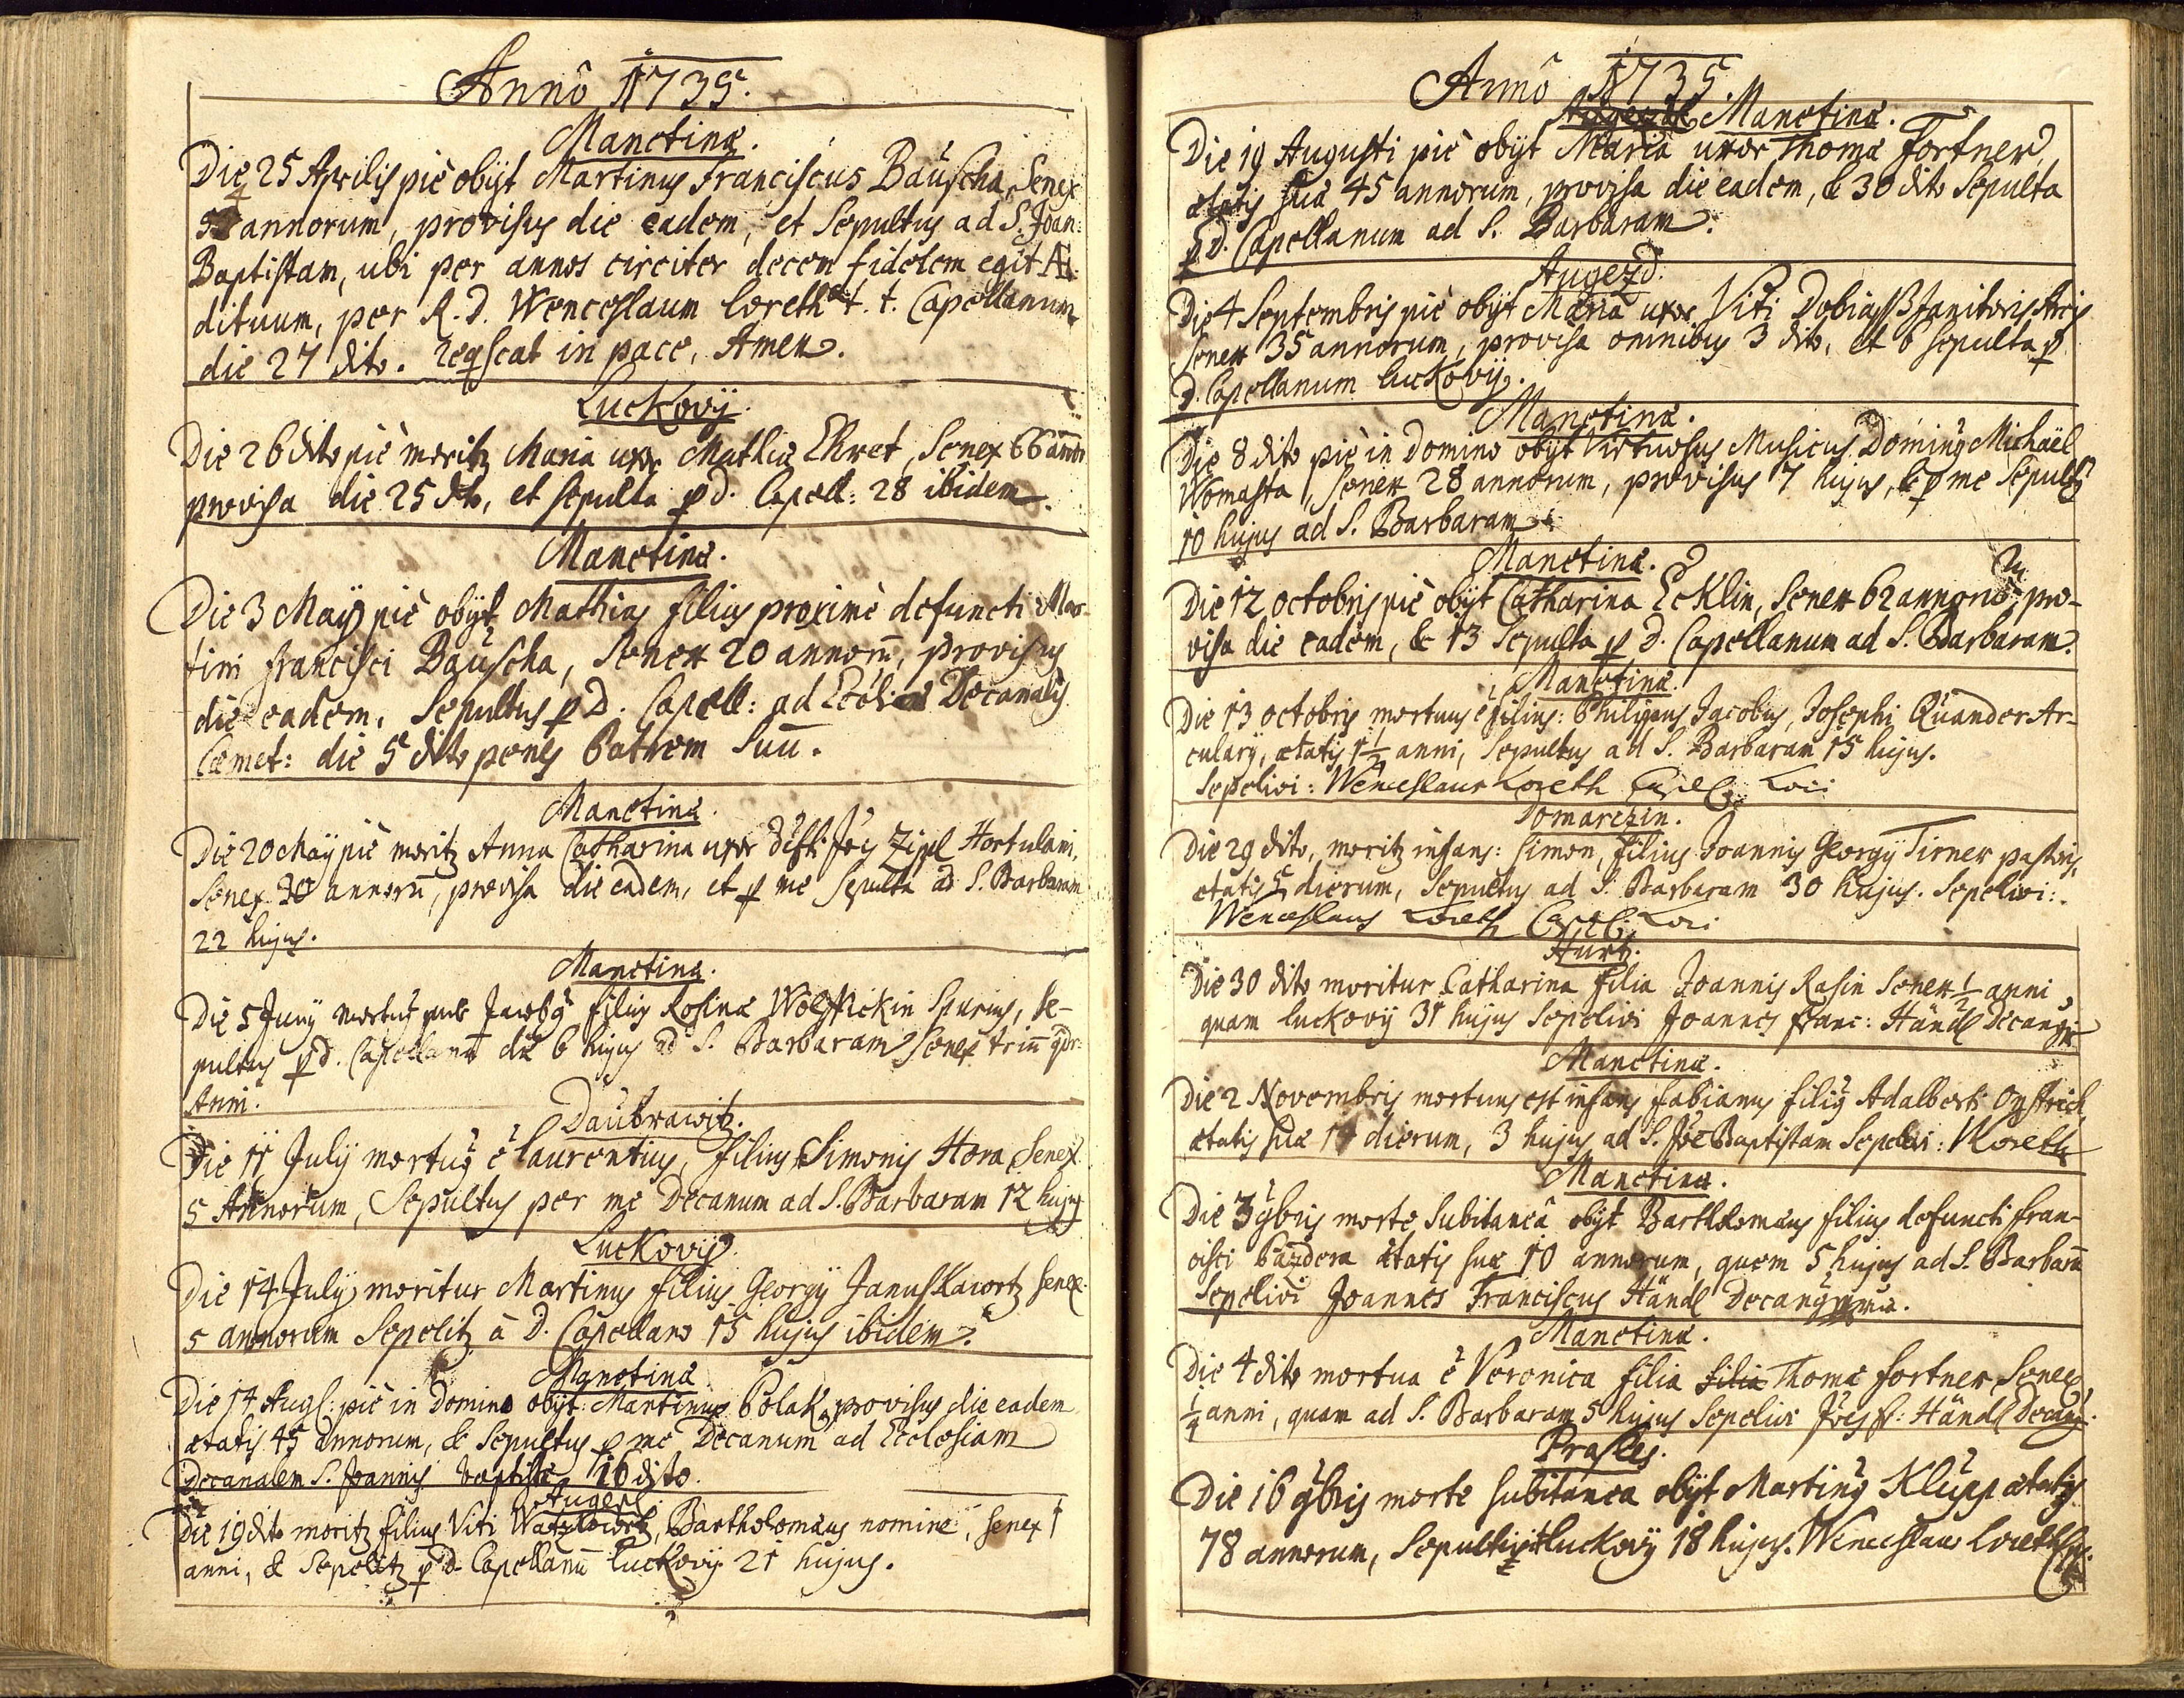 Anno 1735.
Manetinæ.
Die 25 Aprilis piè obijt Martinus Franciscus Bauscha, Senex
54 annorum, provisus die eadem, et Sepultus ad S. Joan:
Baptistam, ubi per annos circiter decem fidelem egit Æ-
dituum, per R. D. Wenceslaum Loreth t. t. Capellanum
die 27 dito. reqscat in pace, Amen.
Luckovij.
Die 26 dito piè moritz Maria uxor Mathiæ Ehret, Senex 66 annor
provisa die 25 dto, et sepulta p d. Capell: 28 ibidem.
Manetinæ.
Die 3 Maij piè obijt Mathias filius proximè defuncti Mar-
tini Francisci Bauscha, Senex 20 annorũ, provisus
die eadem, Sepultus p D. Capell: ad Decanalis
Cœmet: die 5 dito penes Patrem suũ.
Manetinæ.
Die 20 Maij piè moritz Anna Catharina uxor dēfti Jois Zippl Hortulani,
Senex 30 annorũ, provisa die eadem, et p me sepulta ad S. Barbaram
22 hujus.
Manetinæ.
Die 5 Junij mortuus Jacobus filius Rosinæ Spurius, Se-
pultus p d. Capellanũ die 6 hujus ad S. Barbaram Senex
Anni.
Daubrawitz.
Die 11 July mortuus ē Laurentius, filius Simonis Hora, Senex
5 Annorum, Sepultus per me Decanum ad S. Barbaram 12 hujus
Luckovij.
Die 14 July moritur Martinus filius Georgij Januskawetz senex
5 annorum Sepelitz à D. Capellano 15 hujus ibidem.
Manetinæ
Die 14 Aug: piè in Domino obijt Martinus Polak, provisus die eadem
ætatis 45 annorum, & Sepultus p me Decanum ad Ecclesiam
Decanalem S. Joannis baptistæ 16 dito.
Augezd.
Die 19 dito moritz filius Viti Bartholomæus nomine, senex 1
anni, & Sepelitz p D. Capellanũ Luckovij 21 hujus.
Anno 1735.
Manetinæ.
Die 19 Augusti piè obijt Maria uxor Thomæ Fortner,
ætatis suæ 45 annorum, provisa die eadem, & 30 dito Sepulta
p D. Capellanum ad S. Barbaram.
Augezd.
Die 4 Septembris piè obijt Maria uxor Viti Dobiass Janitoris Arcis
senex 35 annorum, provisa omnibus 3 dito, et 6 sepulta p
D. Capellanum Luckovij.
Manetinæ.
Die 8 dito piè in Domino obijt Virtuosus Musicus Dominus Michaël
Womasta, senex 28 annorum, provisus 7 hujus, & p me Sepultus
10 hujus ad S. Barbaram.
Manetinæ.
Die 12 octobris piè obijt Catharina Ecklin, Senex 62 annorũ, pro-
visa die eadem, & 13 Sepulta p D. Capellanum ad S. Barbaram.
Manetinæ.
Die 13 octobris mortuus ē filius: Philippus Jacobus, Josephi Quander Ar-
cularij, ætatis 1 1/4 anni, Sepultus ad S. Barbaram 15 hujus.
Sepelivi: Wenceslaus Loreth
Domarczin.
Die 29 dito, moritz infans: Simon, filius Joannis Georgij Tirner pastoris,
ætatis 5 dierum, Sepultus ad S. Barbaram 30 hujus. Sepelivi:
Wenceslaus Loreth
Hurk.
Die 30 dito moritur Catharina filia Joannis Rasin Senex 1/2 anni,
quam Luckovij 31 hujus Sepelivi Joannes Franc: Händl Decanus
Manetinæ.
Die 2 Novembris mortuus est infans Fabianus filius Adalberti
ætatis suæ 14 dierum, 3 hujus ad S. Joē Baptistam Sepelivi: WLoreth
Manetinæ.
Die 3 9bris morte Subitaneâ obijt Bartholomæus filius defuncti Fran-
cisci Pazdera ætatis suæ 10 annorum, quem 5 hujus ad S. Barbarã
Sepelivi Joannes Franciscus Händl Decanus
Manetinæ.
Die 4 dito mortua ē Veronica filia filia Thomæ Fortner Senex
1/4 anni, quam ad S. Barbaram 5 hujus Sepelivi Händl Decanus.
Prasles.
Die 16 9bris morte subitanea obijt Martinus Klupp ætatis
78 annorum, Sepultus Luckovij 18 hujus. Wenceslaus Loreth